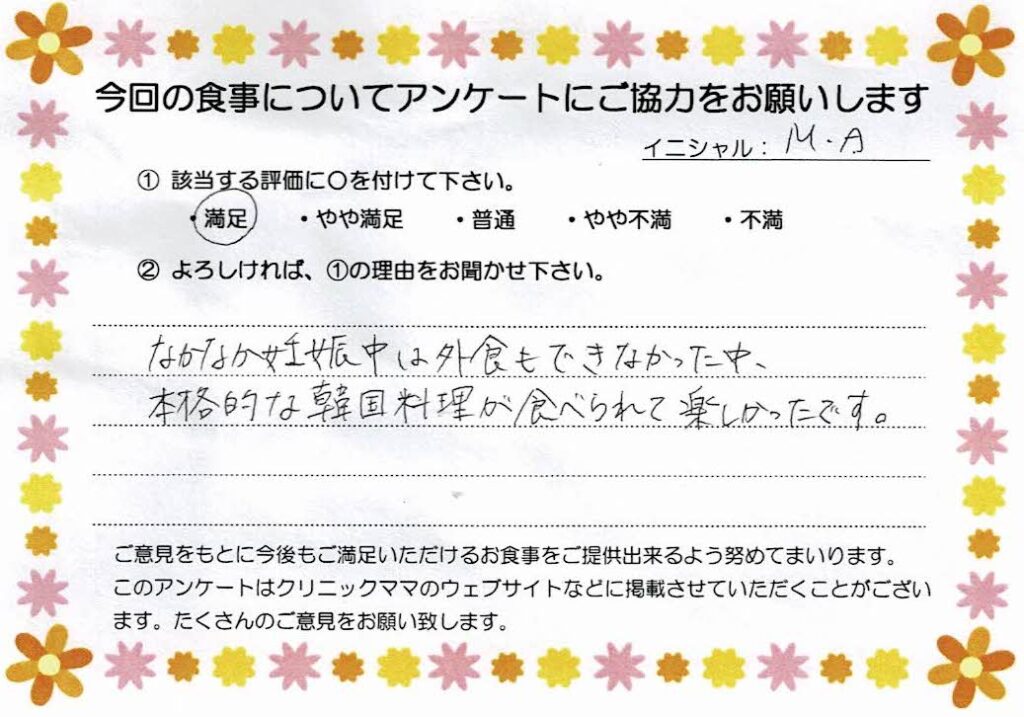 今回の食事についてアンケートにご協力をお願いします
イニシャル： M.A
① 該当する評価に〇を付けて下さい。
・満足 ・やや満足 ・普通 ・やや不満 ・不満
② よろしければ、①の理由をお聞かせ下さい。
なかなか妊娠中は外食もできなかった中、
本格的な韓国料理が食べられて楽しかったです。
ご意見をもとに今後もご満足いただけるお食事をご提供出来るよう努めてまいります。
このアンケートはクリニックママのウェブサイトなどに掲載させていただくことがござい
ます。たくさんのご意見をお願い致します。